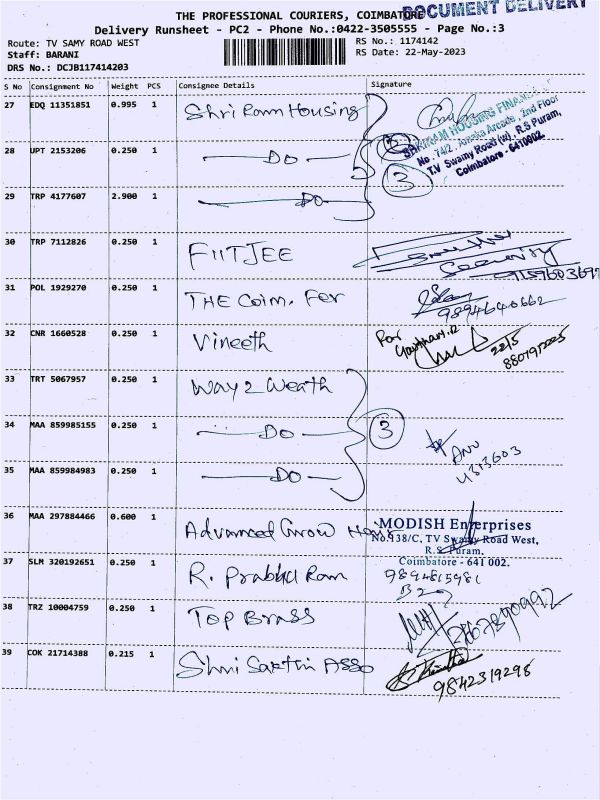 DOCUMENT DELIVERY
THE PROFESSIONAL COURIERS, COIMBATORE
Delivery Runsheet - PC2 - Phone No.:0422-3505555 - Page No.:3
Route: TV SAMY ROAD WEST RS No.: 1174142
Staff: BARANI RS Date: 22-May-2023
DRS No.: DCJB117414203
S No Consignment No Weight PCS Consignee Details Signature
27 EDQ 11351851 0.995 1 Shri Ram Housing
SHRIRAM HOUSING FINANCE
No. 74/2, Arcade, 2nd Floor
T.V Swamy Road (w), R.S Puram,
Coimbatore - 641002
28 UPT 2153206 0.250 1 DO 3
29 TRP 4177607 2.900 1 DO
30 TRP 7112826 0.250 1 FIITJEE Security
31 POL 1929270 0.250 1 THE Coim. Fer 9894640662
32 CNR 1660528 0.250 1 Vineeth For 22/5
33 TRT 5067957 0.250 1 Way 2 Weath
34 MAA 859985155 0.250 1 DO 3 Anu
35 MAA 859984983 0.250 1 DO
36 MAA 297884466 0.600 1 Advanced Grow Hair MODISH Enterprises
No.138/C, TV Swamy Road West,
R.S. Puram,
Coimbatore - 641 002.
37 SLM 320192651 0.250 1 R. Prabhu Ram
38 TRZ 10004759 0.250 1 TOP BRASS
39 COK 21714388 0.215 1 Shri Sakthi Asso 9842319298